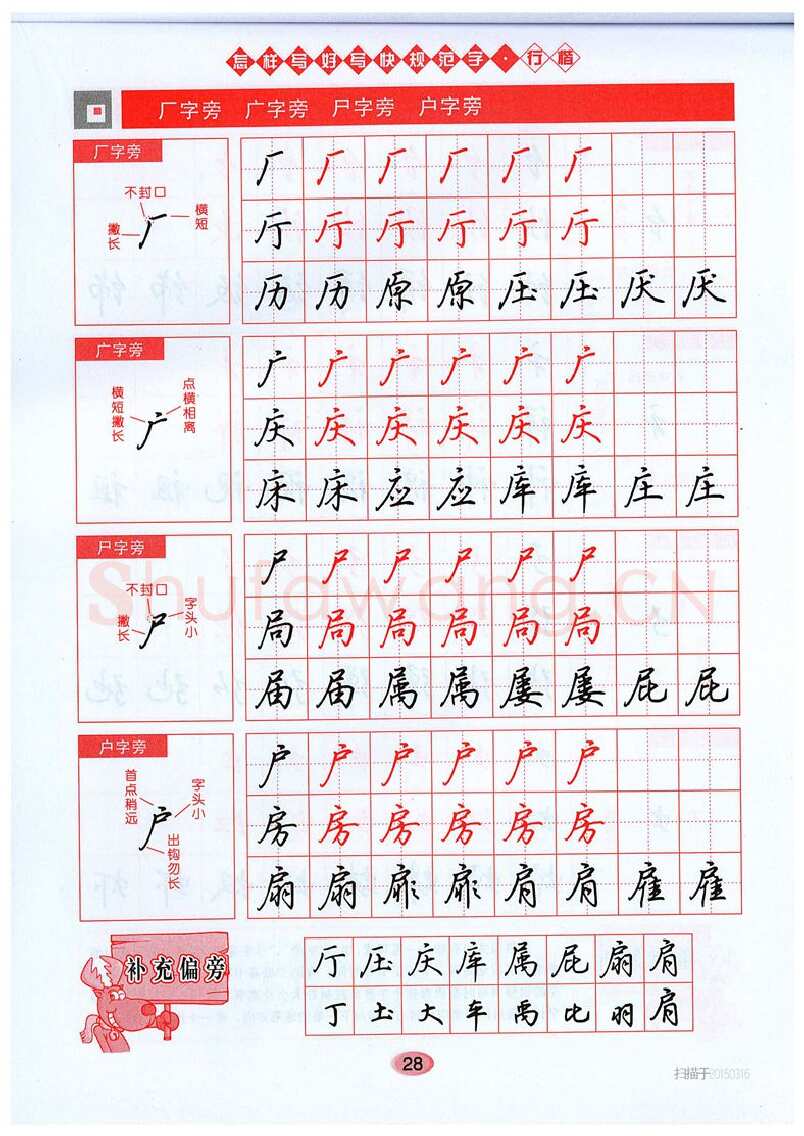 怎样写好写快规范字·行楷
厂字旁 广字旁 尸字旁 户字旁
厂字旁
不封口
横短
撇长
厂 厂 厂 厂 厂 厂
厅 厅 厅 厅 厅 厅
历 历 原 原 压 压 厌 厌
广字旁
点横相离
横短撇长
广 广 广 广 广 广
庆 庆 庆 庆 庆 庆
床 床 应 应 库 库 庄 庄
尸字旁
不封口
字头小
撇长
尸 尸 尸 尸 尸 尸
局 局 局 局 局 局
届 届 属 属 屡 屡 屁 屁
户字旁
首点稍远
字头小
出钩勿长
户 户 户 户 户 户
房 房 房 房 房 房
扇 扇 扉 扉 肩 肩 雇 雇
补充偏旁
厅 压 庆 库 属 屁 扇 肩
丁 圡 大 车 禹 比 羽 肩
28
Shufawang.CN
扫描于20150316